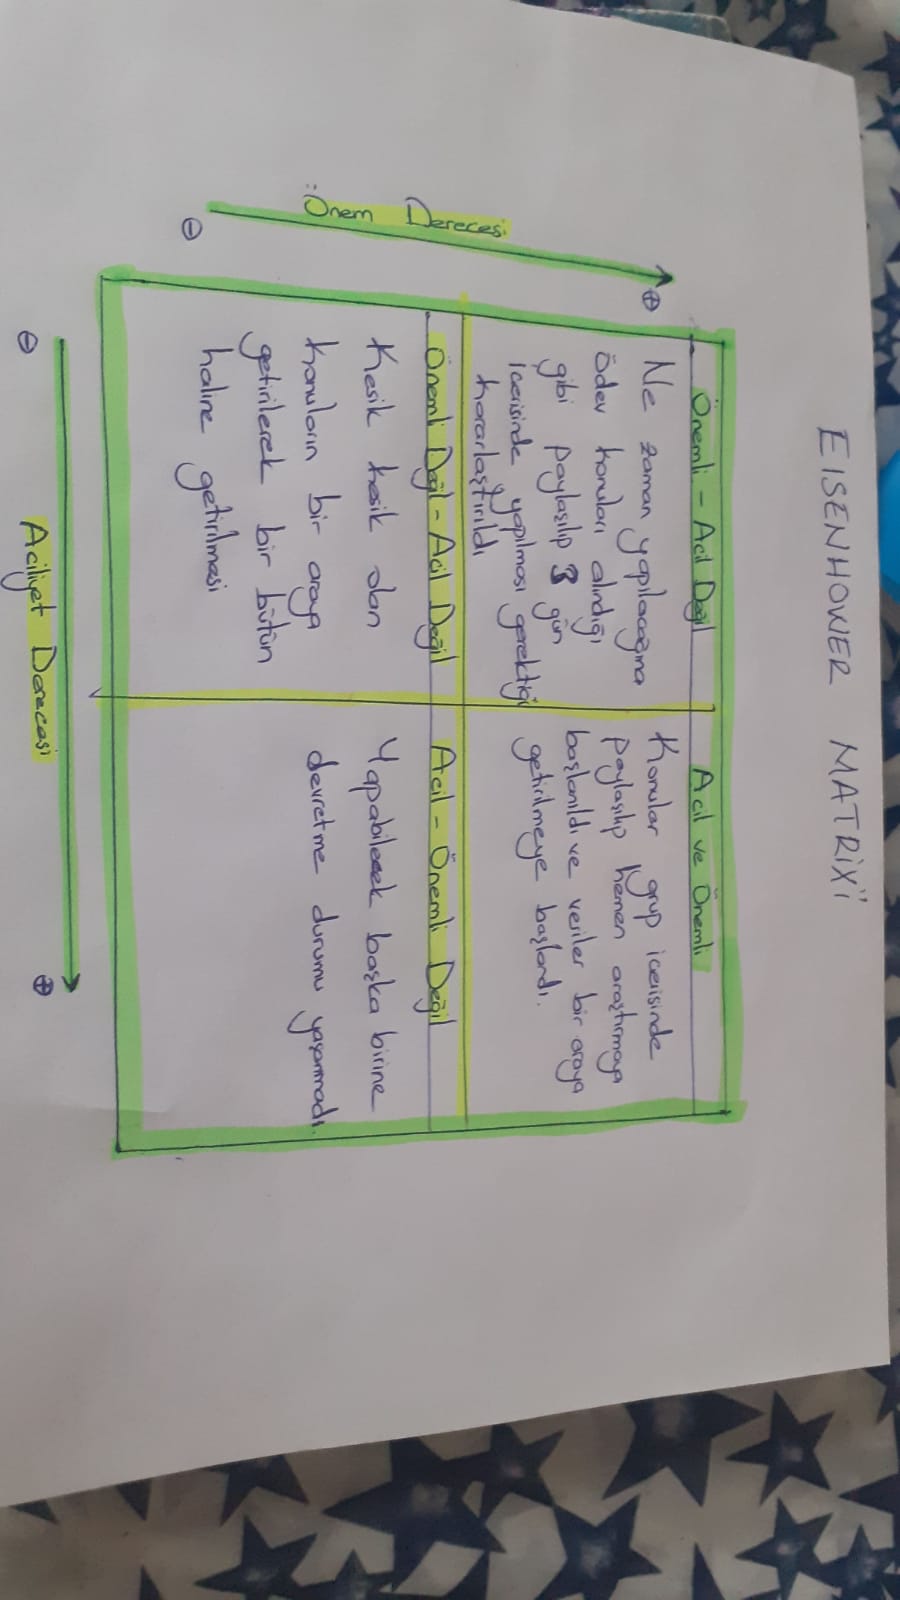 EISENHOWER MATRİXİ
Önem Derecesi
Önemli - Acil Değil
Ne zaman yapılacağına
ödev konuları alındığı
gibi paylaşılıp 3 gün
içerisinde yapılması gerektiği
kararlaştırıldı
Acil ve Önemli
Konular grup içerisinde
paylaşılıp hemen araştırmaya
başlanıldı ve veriler bir araya
getirilmeye başlandı.
Önemli Değil - Acil Değil
Kesik kesik olan
konuların bir araya
getirilerek bir bütün
haline getirilmesi
Acil - Önemli Değil
Yapabilecek başka birine
devretme durumu yaşanmadı.
Aciliyet Derecesi